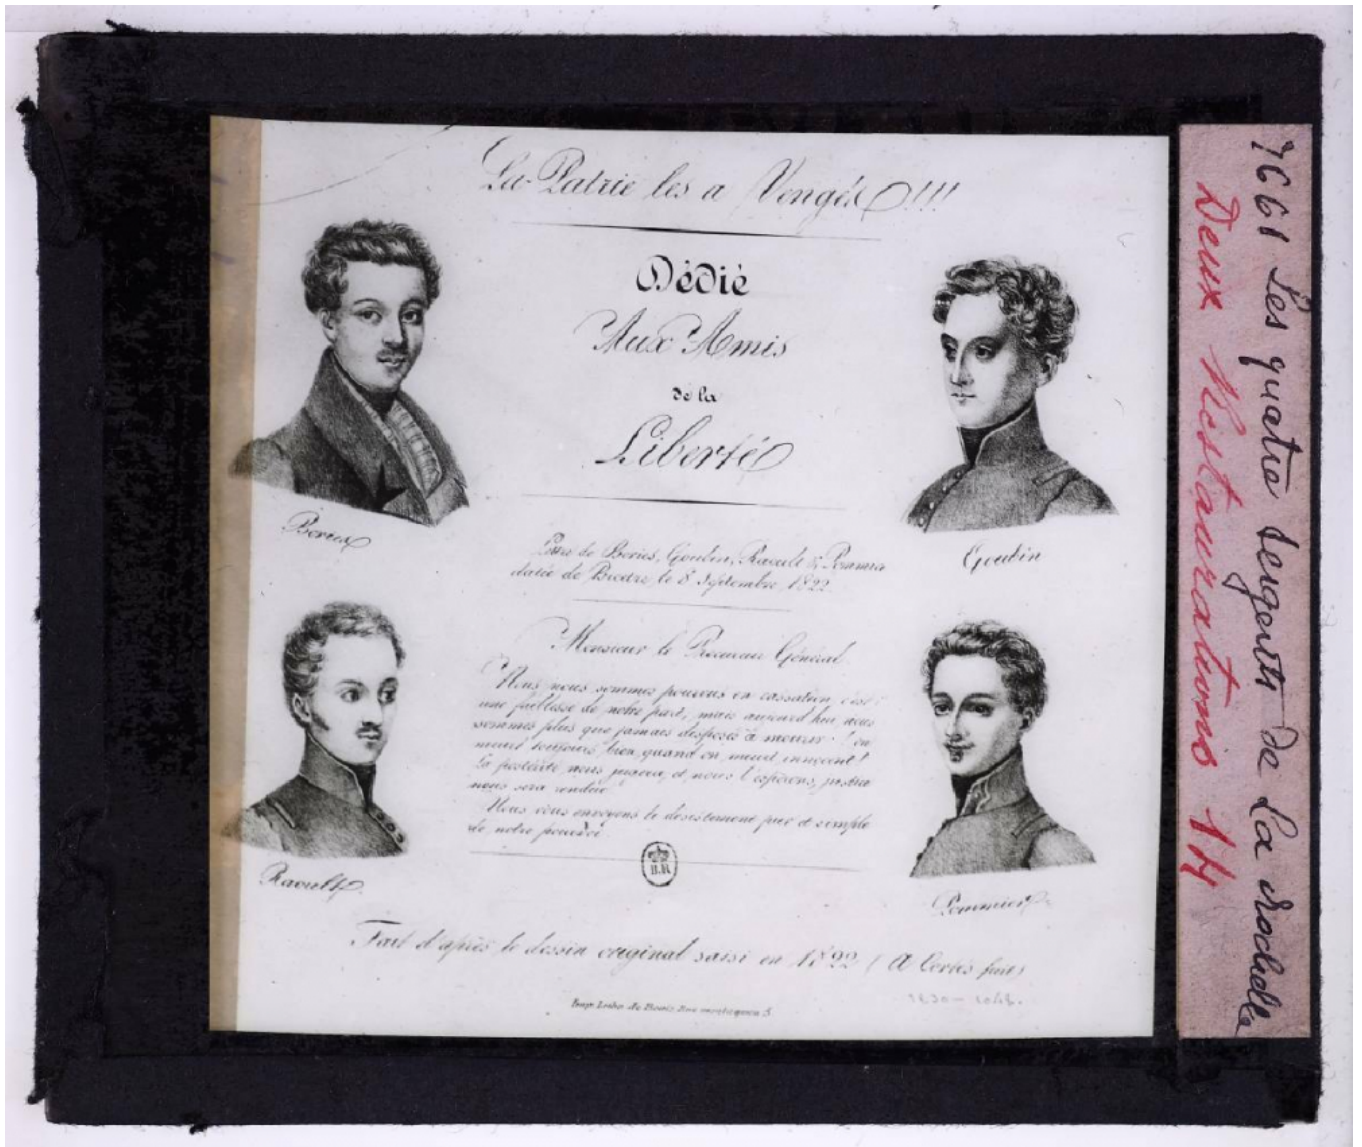 La Patrie les a Vengés!!!
Dédié
Aux Amis
de la
Liberté
Bories
Goubin
Lettre de Bories, Goubin, Raoult & Pommier
datée de Bicêtre, le 8 Septembre, 1822
Monsieur le Procureur Général
Nous nous sommes pourvus en cassation, c'est
une faiblesse de notre part, mais aujourd'hui nous
sommes plus que jamais disposés à mourir. On
meurt toujours bien quand on meurt innocent!
La postérité nous jugera, et, nous l'espérons, justice
nous sera rendue
Nous vous envoyons le désistement pur et simple
de notre pourvoi
Raoult
Pommier
B.R
Fait d'après le dessin original saisi en 1822 (A Cortès fecit)
Imp. Litho. de
7661 Les quatre sergents de La Rochelle
Deux Restaurations 14